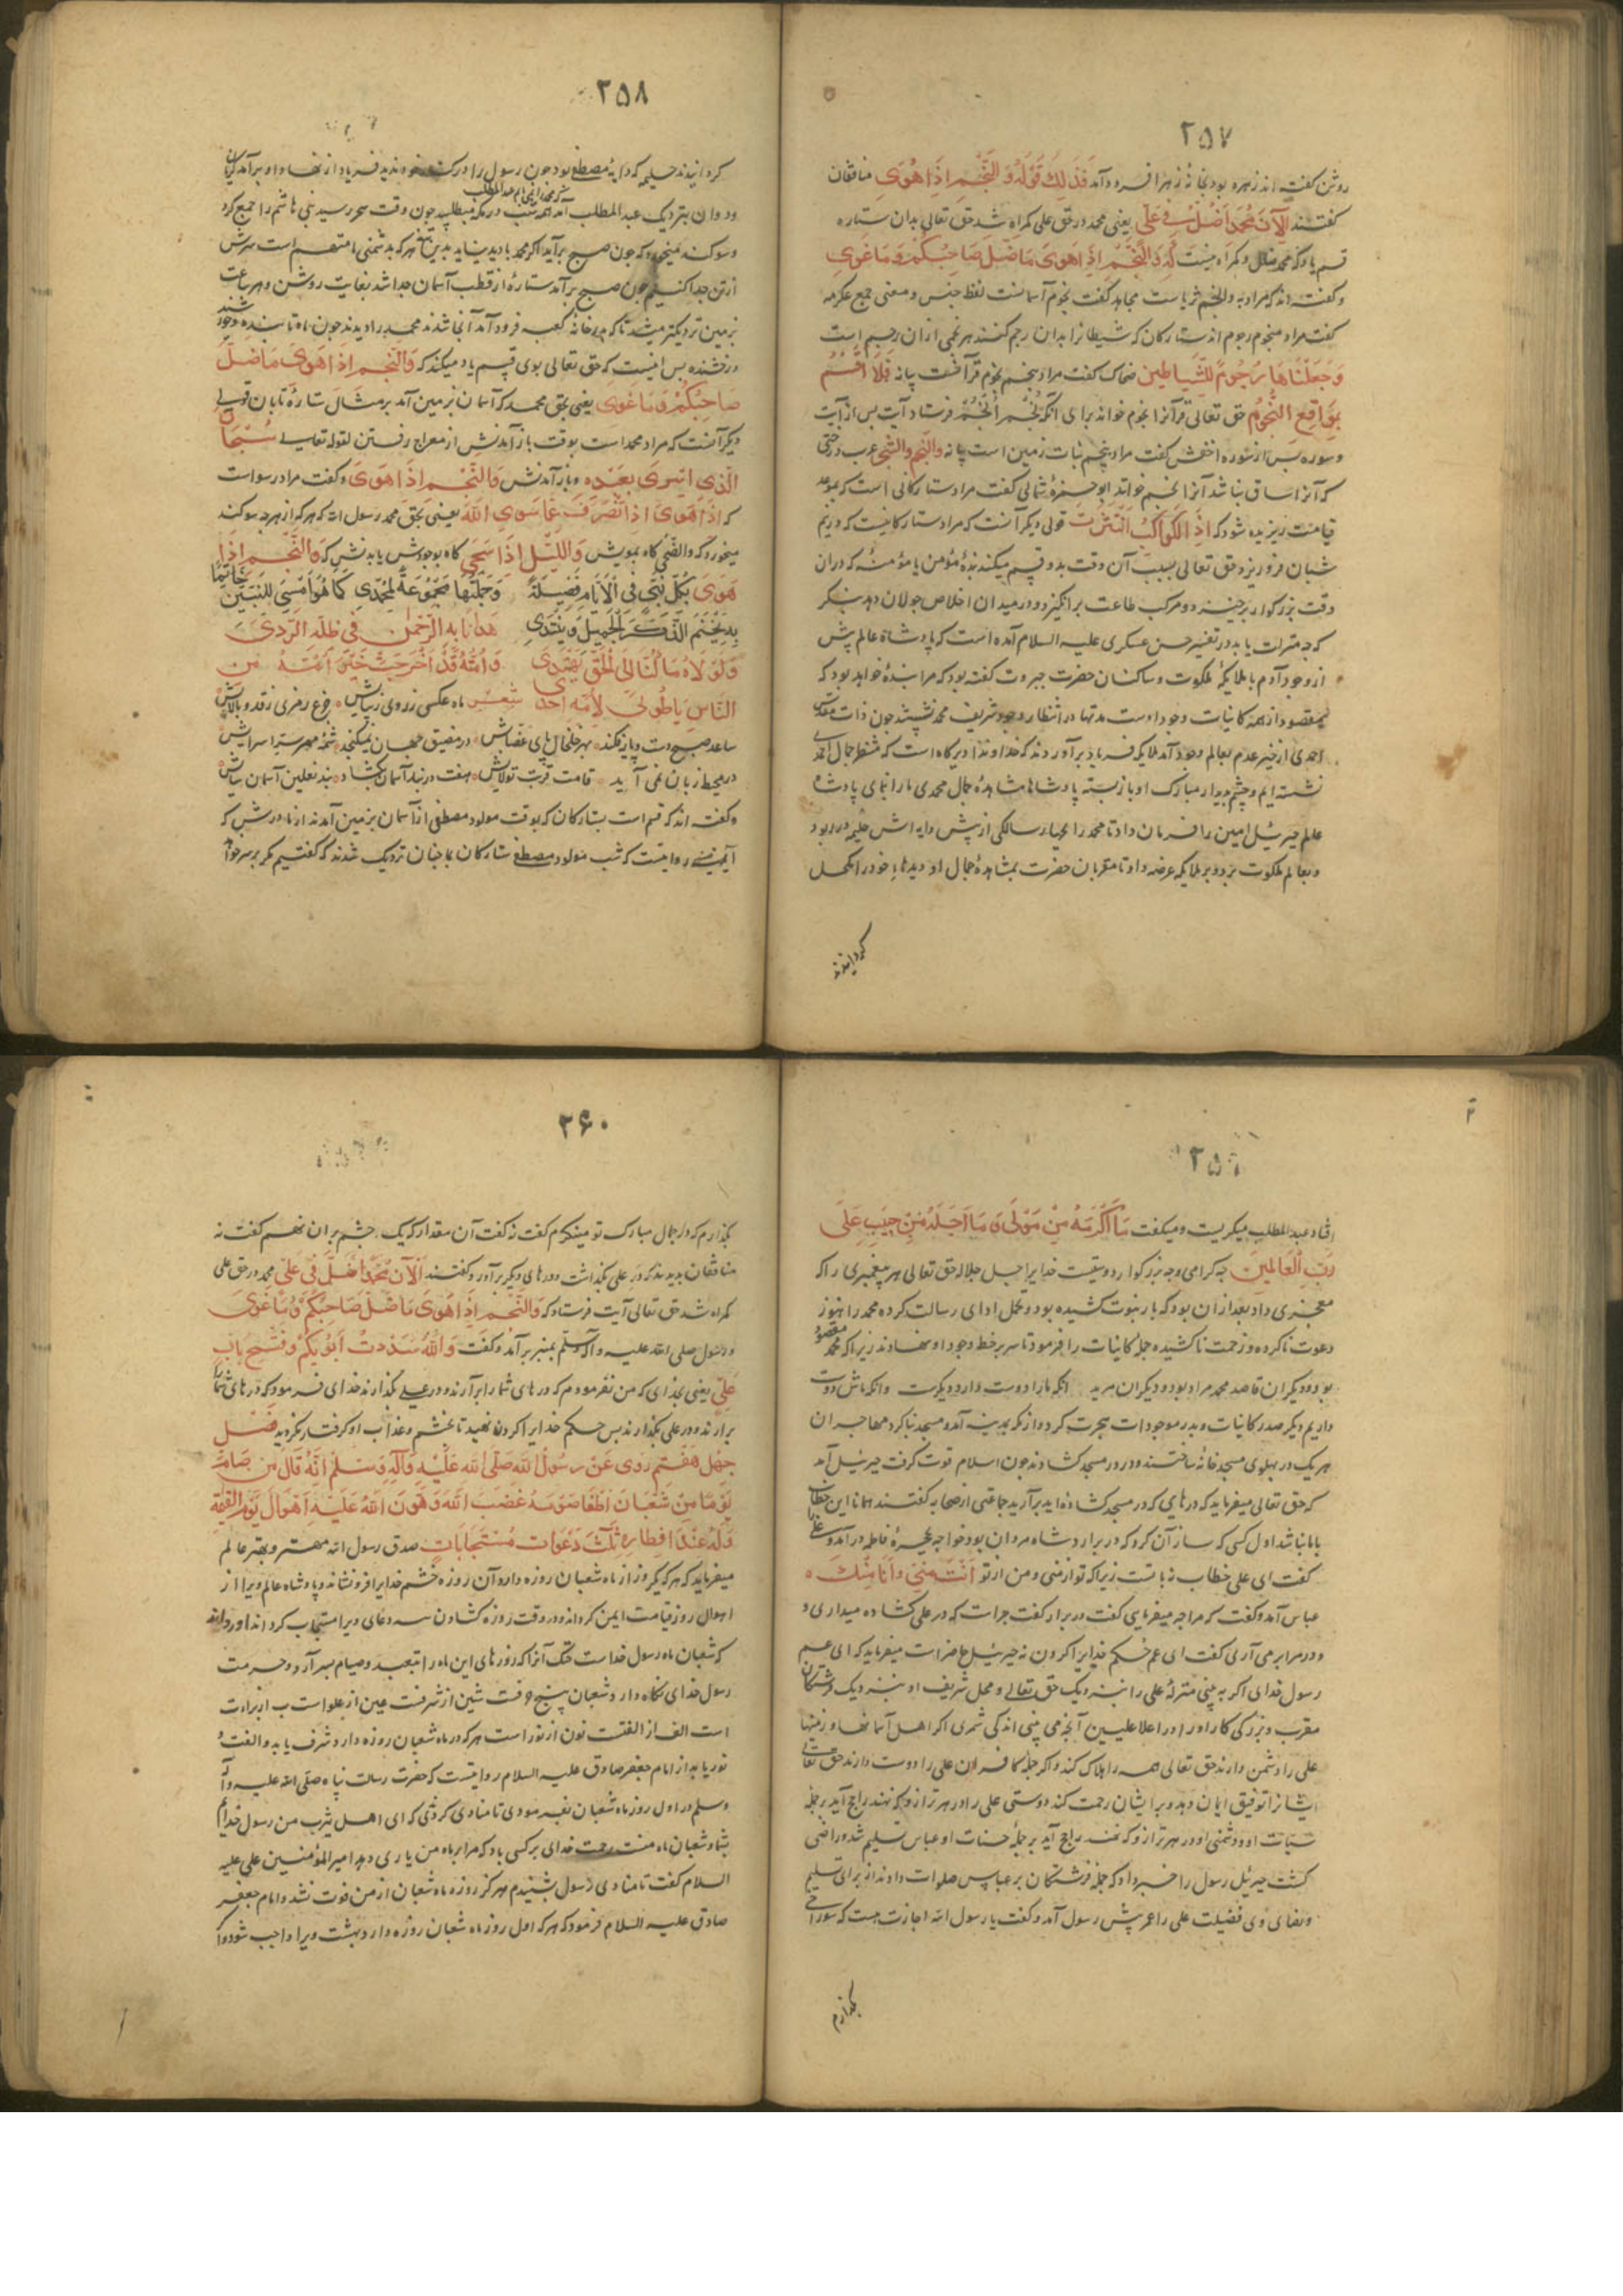 ۲۵۷
روشن گفته‌اند زهره بود بخانهٔ زهرا فرود آمد فَذَلِكَ قَوْلُهُ وَالنَّجْمِ إِذَا هَوَى منافقان
گفتند الْآنَ مُحَمَّد أَضَلَّ فِي عَلِيّ یعنی محمد در حق علی گمراه شد حق تعالی بدان ستاره
قسم یاد که محمد ضال و گمراه نیست که وَالنَّجْمِ إِذَا هَوَى مَا ضَلَّ صَاحِبُكُمْ وَمَا غَوَى
و گفته‌اند که مراد به والنجم ثریاست مجاهد گفت نجوم آسمانست لفظ جنس و معنی جمع عکرمه
گفت مراد بنجوم رجوم‌اند ستارگان که شیطانرا بدان رجم کنند هر نجمی ازان رجیم است
وَجَعَلْنَاهَا رُجُومًا لِلشَّيَاطِينِ ضحاک گفت مراد بنجم نجوم قرآنست بیانه فَلَا أُقْسِمُ
بِمَوَاقِعِ النُّجُومِ حق تعالی قرآنرا نجوم خواند برای آنکه فرستاد آیت بس از آیت
و سوره بس از سوره اخفش گفت مراد بنجم نبات زمین است بیانه والنجم والشجر عرب درختی
که آنرا ساق نباشد آنرا نجم خواند ابو حمزهٔ ثمالی گفت مراد ستارگانی است که بموعد
قیامت ریزیده شود که إِذَا الْكَوَاكِبُ انْتَثَرَتْ قولی دیگر آنست که مراد ستارگانیست که در نیم
شبان فرو ریزد حق تعالی بسبب آن وقت بدو قسم میکند بندهٔ مؤمن یا مؤمنه که دران
وقت بزرگوار برخیزد و مرکب طاعت برانگیزد و در میدان اخلاص جولان دهد بنگر
که چه مترات یابد در تفسیر حسن عسکری علیه السلام آمده است که پادشاه عالم پیش
از وجود آدم با ملایکهٔ ملکوت و ساکنان حضرت جبروت گفته بود که مرا بندهٔ خواهد بود که
مقصود از همه کاینات وجود اوست مدتها در انتظار وجود شریف محمد نشستند چون ذات مقدس
احمدی از حیز عدم بعالم وجود آمد ملایکه فریاد برآوردند که خداوندا دیرگاه است که منتظر جمال احمدی
نشسته‌ایم و چشم بدیدار مبارک او باز بسته پادشاها مشاهدهٔ جمال محمدی ما را نمای پادشاه
عالم جبرئیل امین را فرمان داد تا محمد را بچهار سالگی از پیش دایه‌اش حلیمه در ربود
و بعالم ملکوت برد و بر ملایکه عرضه داد تا مقربان حضرت بمشاهدهٔ جمال او دیدهاء خود را مکحل
گردانیدند
۲۵۸
گردانیدند حلیمه که دایهٔ مصطفی بود چون رسول را در کنف خود ندید فریاد از نهاد او برآمد گریان
و دوان بنزدیک عبد المطلب آمد همه شب در مکه میطلبید چون وقت سحر رسید بنی هاشم را جمع کرد
و سوگند میخورد که چون صبح برآید اگر محمد بادید نیاید بدین تیغ هر که بدشمنی ما متهم است سرش
از تن جدا کنیم چون صبح برآمد ستارهٔ از قطب آسمان جدا شد بغایت روشن و هر ساعت
بزمین نزدیکتر میشد تا که بدر خانهٔ کعبه فرود آمد آنجا شدند محمد را دیدند چون ماه تابنده و چون
درخشنده پس اینست که حق تعالی بوی قسم یاد میکند که وَالنَّجْمِ إِذَا هَوَى مَا ضَلَّ
صَاحِبُكُمْ وَمَا غَوَى یعنی بحق محمد که از آسمان بزمین آمد بر مثال ستارهٔ تابان قولی
دیگر آنست که مراد محمد است بوقت باز آمدنش از معراج رفتن لقوله تعالی سُبْحَانَ
الَّذِي أَسْرَى بِعَبْدِهِ و باز آمدنش وَالنَّجْمِ إِذَا هَوَى و گفت مراد رسول است
که إِذَا هَوَى إِذَا انْصَرَفَ عَمَّا سِوَى اللَّهِ یعنی بحق محمد رسول الله که هر که از هر چه سوگند
میخورد گه والضحی گاه بمویش وَاللَّيْلِ إِذَا سَجَى گاه بوجودش یا بدنش که وَالنَّجْمِ إِذَا
هَوَى بِكُلِّ نَبِيٍّ فِي الْأَنَامِ فَضِيلَةٌ وَجُمْلَتُهَا مَجْمُوعَةٌ لِمُحَمَّدِي كَمَا هُوَ أَمْسَى لِلنَّبِيِّينَ خَاتِمًا
بِهِ يُخْتَمُ الذِّكْرُ الْجَمِيلُ وَيَبْتَدِي هَدَانَا بِهِ الرَّحْمَنُ فِي ظُلَمِ الرَّدَى
وَلَوْلَاهُ مَا كُنَّا إِلَى الْحَقِّ نَهْتَدِي وَأُمَّتُهُ قَدْ أُخْرِجَتْ خَيْرَ أُمَّةٍ مِنَ
النَّاسِ يَا طُوبَى لِأُمَّةِ أَحْمَدِي شعر ماه عکسی ز روی زیبایش
ساعد صبح دست و یازه کند بهر خلخال پای عضبایش در مضیق جهان نمیگنجد
در محیط زبان نمی آید قامت قربت تولایش هفت در بند آسمان بگشاد بند نعلین آسمان سایش
و گفته‌اند که قسم است بستارگان که بوقت مولود مصطفی از آسمان بزمین آمدند از مادرش که
آمنه روایتست که شب مولود مصطفی ستارگان بما چنان نزدیک شدند که گفتیم مگر بر سر خواهد
۲۵۹
افتاد عبد المطلب میگریست و میگفت مَا أَكْرَمَهُ مِنْ مَوْلًى وَمَا أَجَلَّهُ مِنْ حَبِيبٍ عَلَى
رَبِّ الْعَالَمِينَ چه گرامی و چه بزرگوار دوستیست خدایرا جل جلاله حق تعالی هر پیغمبری را که
معجزی داد بعد از آن بود که بار نبوت کشیده بود و تحمل ادای رسالت کرده محمد را هنوز
دعوت ناکرده و زحمت ناکشیده جمله کاینات را فرمود تا سر بر خط وجود او نهادند زیرا که محمد مقصود
بود و دیگران قاصد محمد مراد بود و دیگران مرید آنکه ما را دوست دارد دیگرست و آنکه ماش دوست
داریم دیگر صدر کاینات و بدر موجودات هجرت کرد و از مکه بمدینه آمد و مسجد بنا کرد مهاجران
هر یک در پهلوی مسجد خانهٔ ساختند و در در مسجد گشادند چون اسلام قوت گرفت جبرئیل آمد
که حق تعالی میفرماید که درهای که در مسجد گشاده‌اید برآرید جماعتی از صحابه گفتند همانا این خطاب
با ما نباشد اول کسی که ساز آن کرد که در برآرد شاه مردان بود خواجه بحجرهٔ فاطمه درآمد و علی را
گفت ای علی خطاب نه با تست زیرا که تو از منی و من از تو أَنْتَ مِنِّي وَأَنَا مِنْكَ
عباس آمد و گفت که مرا چه میفرمایی گفت در برآر گفت چراست که در علی گشاده میداری و
و در مرا برمی آری گفت ای عم حکم خدایرا گردن نه جبرئیل حاضر است میفرماید که ای عم
رسول خدای اگر به بینی منزلهٔ علی را بنزدیک حق تعالی و محل شریف او بنزدیک فرشتگان
مقرب و بزرگی کار او را در اعلا علیین آنچه می بینی اندکی شمری اگر اهل آسمانها و زمینها
علی را دشمن دارند حق تعالی همه را هلاک کند و اگر جملهٔ کافران علی را دوست دارند حق تعالی
ایشانرا توفیق ایمان دهد و بر ایشان رحمت کند دوستی علی را در هر ترازو که نهند راجح آید بر جمله
سیئات او و دشمنی او در هر ترازو که نهند راجح آید بر جملهٔ حسنات او عباس تسلیم شد و راضی
گشت جبرئیل رسول را خبر داد که جمله فرشتگان بر عباس صلوات دادند از برای تسلیم
و رضای وی فضیلت علی را عمر پیش رسول آمد و گفت یا رسول الله اجازت هست که سوراخی
بگذارم
۲۶۰
بگذارم که در جمال مبارک تو مینگرم گفت نه گفت آن مقدار که یک چشم بران نهم گفت نه
منافقان بدیدند که در علی بگذاشت و درهای دیگر برآورد گفتند الْآنَ مُحَمَّد أَضَلَّ فِي عَلِيّ محمد در حق علی
گمراه شد حق تعالی آیت فرستاد که وَالنَّجْمِ إِذَا هَوَى مَا ضَلَّ صَاحِبُكُمْ وَمَا غَوَى
و رسول صلی الله علیه و آله وسلم بمنبر برآمد و گفت وَاللَّهُ سَدَدْتُ أَبْوَابَكُمْ وَفَتَحَ بَابَ
عَلِيٍّ یعنی بخدای که من نفرمودم که درهای شما را برآرند و در علی بگذارند خدای فرمود که درهای شما را
برآرند و در علی بگذارند بس حکم خدایرا گردن نهید تا بخشم و عذاب او گرفتار نگردید فصل
چهل هفتم رُوِيَ عَنْ رَسُولِ اللَّهِ صَلَّى اللَّهُ عَلَيْهِ وَآلِهِ وَسَلَّمَ أَنَّهُ قَالَ مَنْ صَامَ
يَوْمًا مِنْ شَعْبَانَ أَطْفَأَ صَوْمُهُ غَضَبَ اللَّهِ وَهَوَّنَ اللَّهُ عَلَيْهِ أَهْوَالَ يَوْمِ الْقِيَمَةِ
وَلَهُ عِنْدَ إِفْطَارِهِ ثَلَثَ دَعَوَاتٍ مُسْتَجَابَاتٍ صدق رسول الله مهتر و بهتر عالم
میفرماید که هر که یکروز از ماه شعبان روزه دارد آن روزه خشم خدایرا فرو نشاند و پادشاه عالم ویرا از
اهوال روز قیامت ایمن گرداند و در وقت روزه گشادن سه دعای ویرا مستجاب گرداند
که شعبان ماه رسول خداست خنک آنرا که روزهای این ماه را بتعبد و صیام بسر آرد و حرمت
رسول خدای نگاه دارد شعبان پنج حرفست شین از شرفست عین از علو است ب از برات
است الف از الفتست نون از نور است هر که در ماه شعبان روزه دارد شرف یابد و الفت و
نور یابد از امام جعفر صادق علیه السلام روایتست که حضرت رسالت پناه صلی الله علیه و آله
وسلم در اول روز ماه شعبان بفرمودی تا منادی کردی که ای اهل یثرب من رسول خدایم
بشما و شعبان ماه منست رحمت خدای بر کسی باد که مرا بر ماه من یاری دهد امیر المؤمنین علی علیه
السلام گفت تا منادی رسول بشنیدم هرگز روزه ماه شعبان از من فوت نشد و امام جعفر
صادق علیه السلام فرمود که هر که اول روز ماه شعبان روزه دارد بهشت ویرا واجب شود و